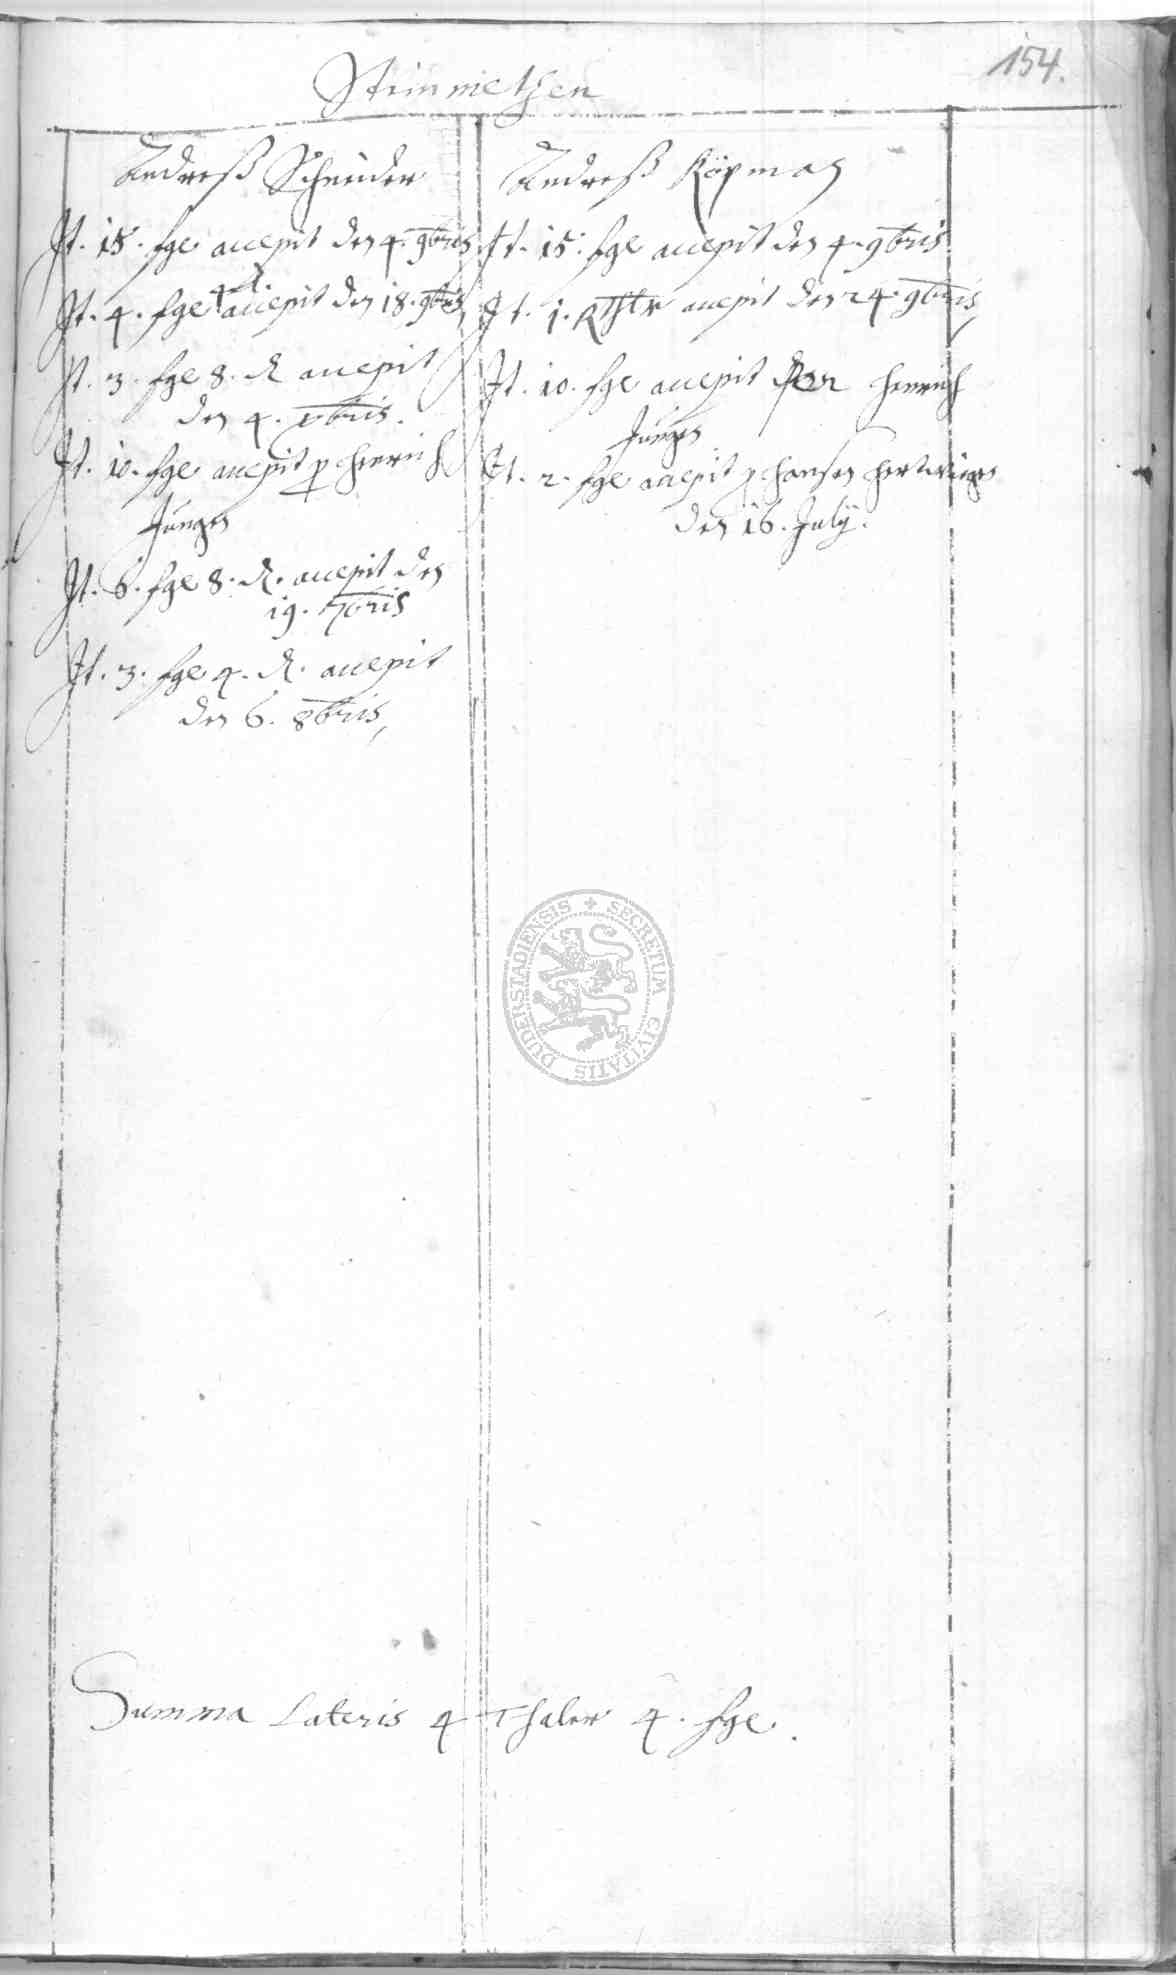 154.
Steinmetzen
Andreß Schneider
It. 15. sgl accepit den 4. 9bris
It. 4. sgl 4 d. accepit den 18. 9bris
It. 3. sgl 8. d accepit
den 4. Xbris.
It. 10. sgl accepit p Henrich
Junges
It. 6. sgl 8. d. accepit den
19. 7bris
It. 3. sgl 4. d. accepit
den 6. 8bris,
Andreß Köpman
It. 15. sgl accepit den 4. 9bris
It. 1. Rthlr accepit den 24. 9bris,
It. 10. sgl accepit per Henrich
Junges
It. 2. sgl accepit p Hansen Hertwiges
den 16. July.
DUDERSTADIENSIS + SECRETUM CIVITATIS
Summa Lateris 4 Thaler 4. sgl.